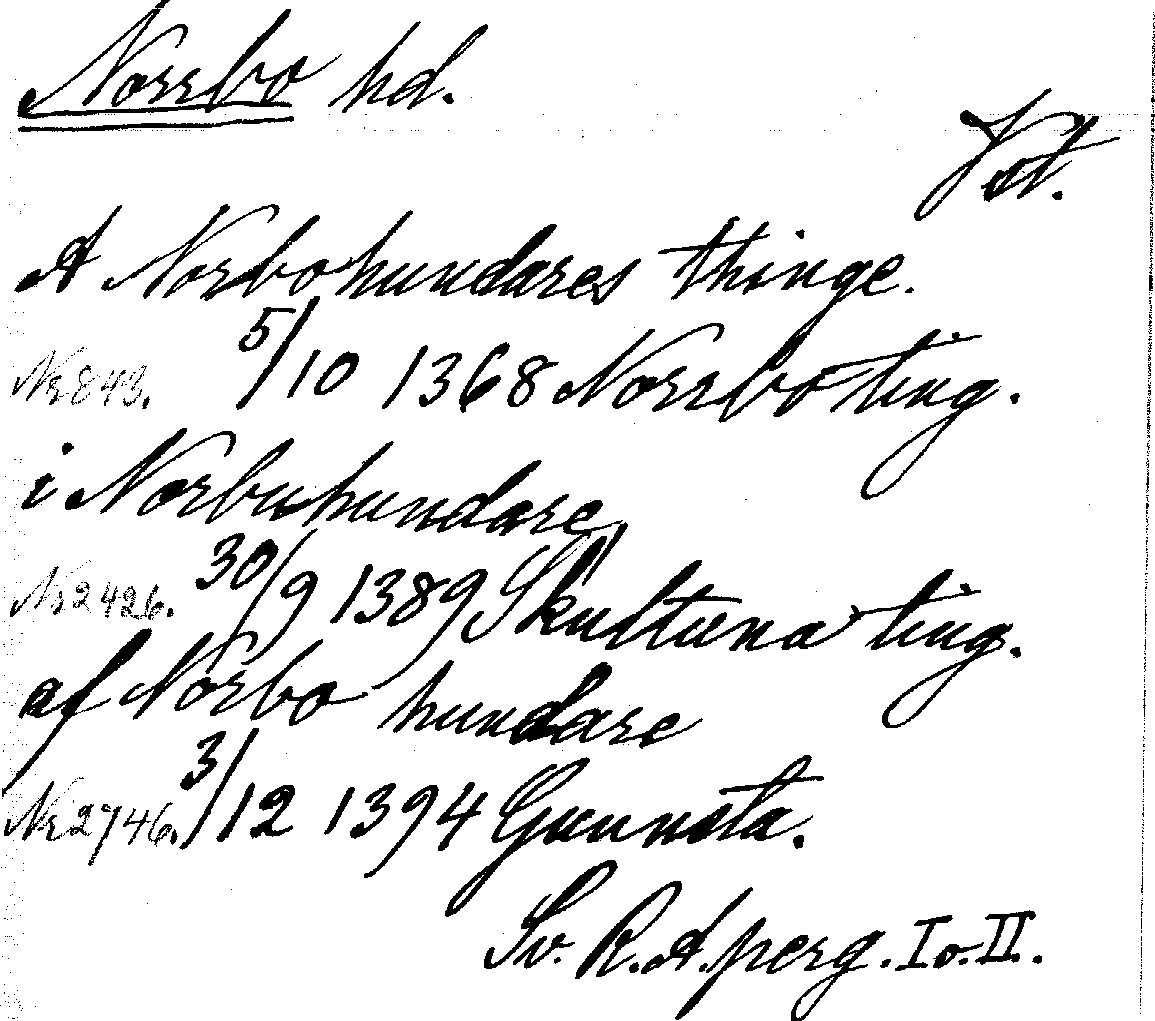 Norrbo hd.
Vst.
A Norbohundares thinge.
Nr 843. 5/10 1368 Norrbo ting.
i Norbuhundare
Nr 2426. 30/9 1389 Skultuna ting.
af Norbo hundare
Nr 2746. 3/12 1394 Gunnsta.
Sv. R. A. perg. I o. II.